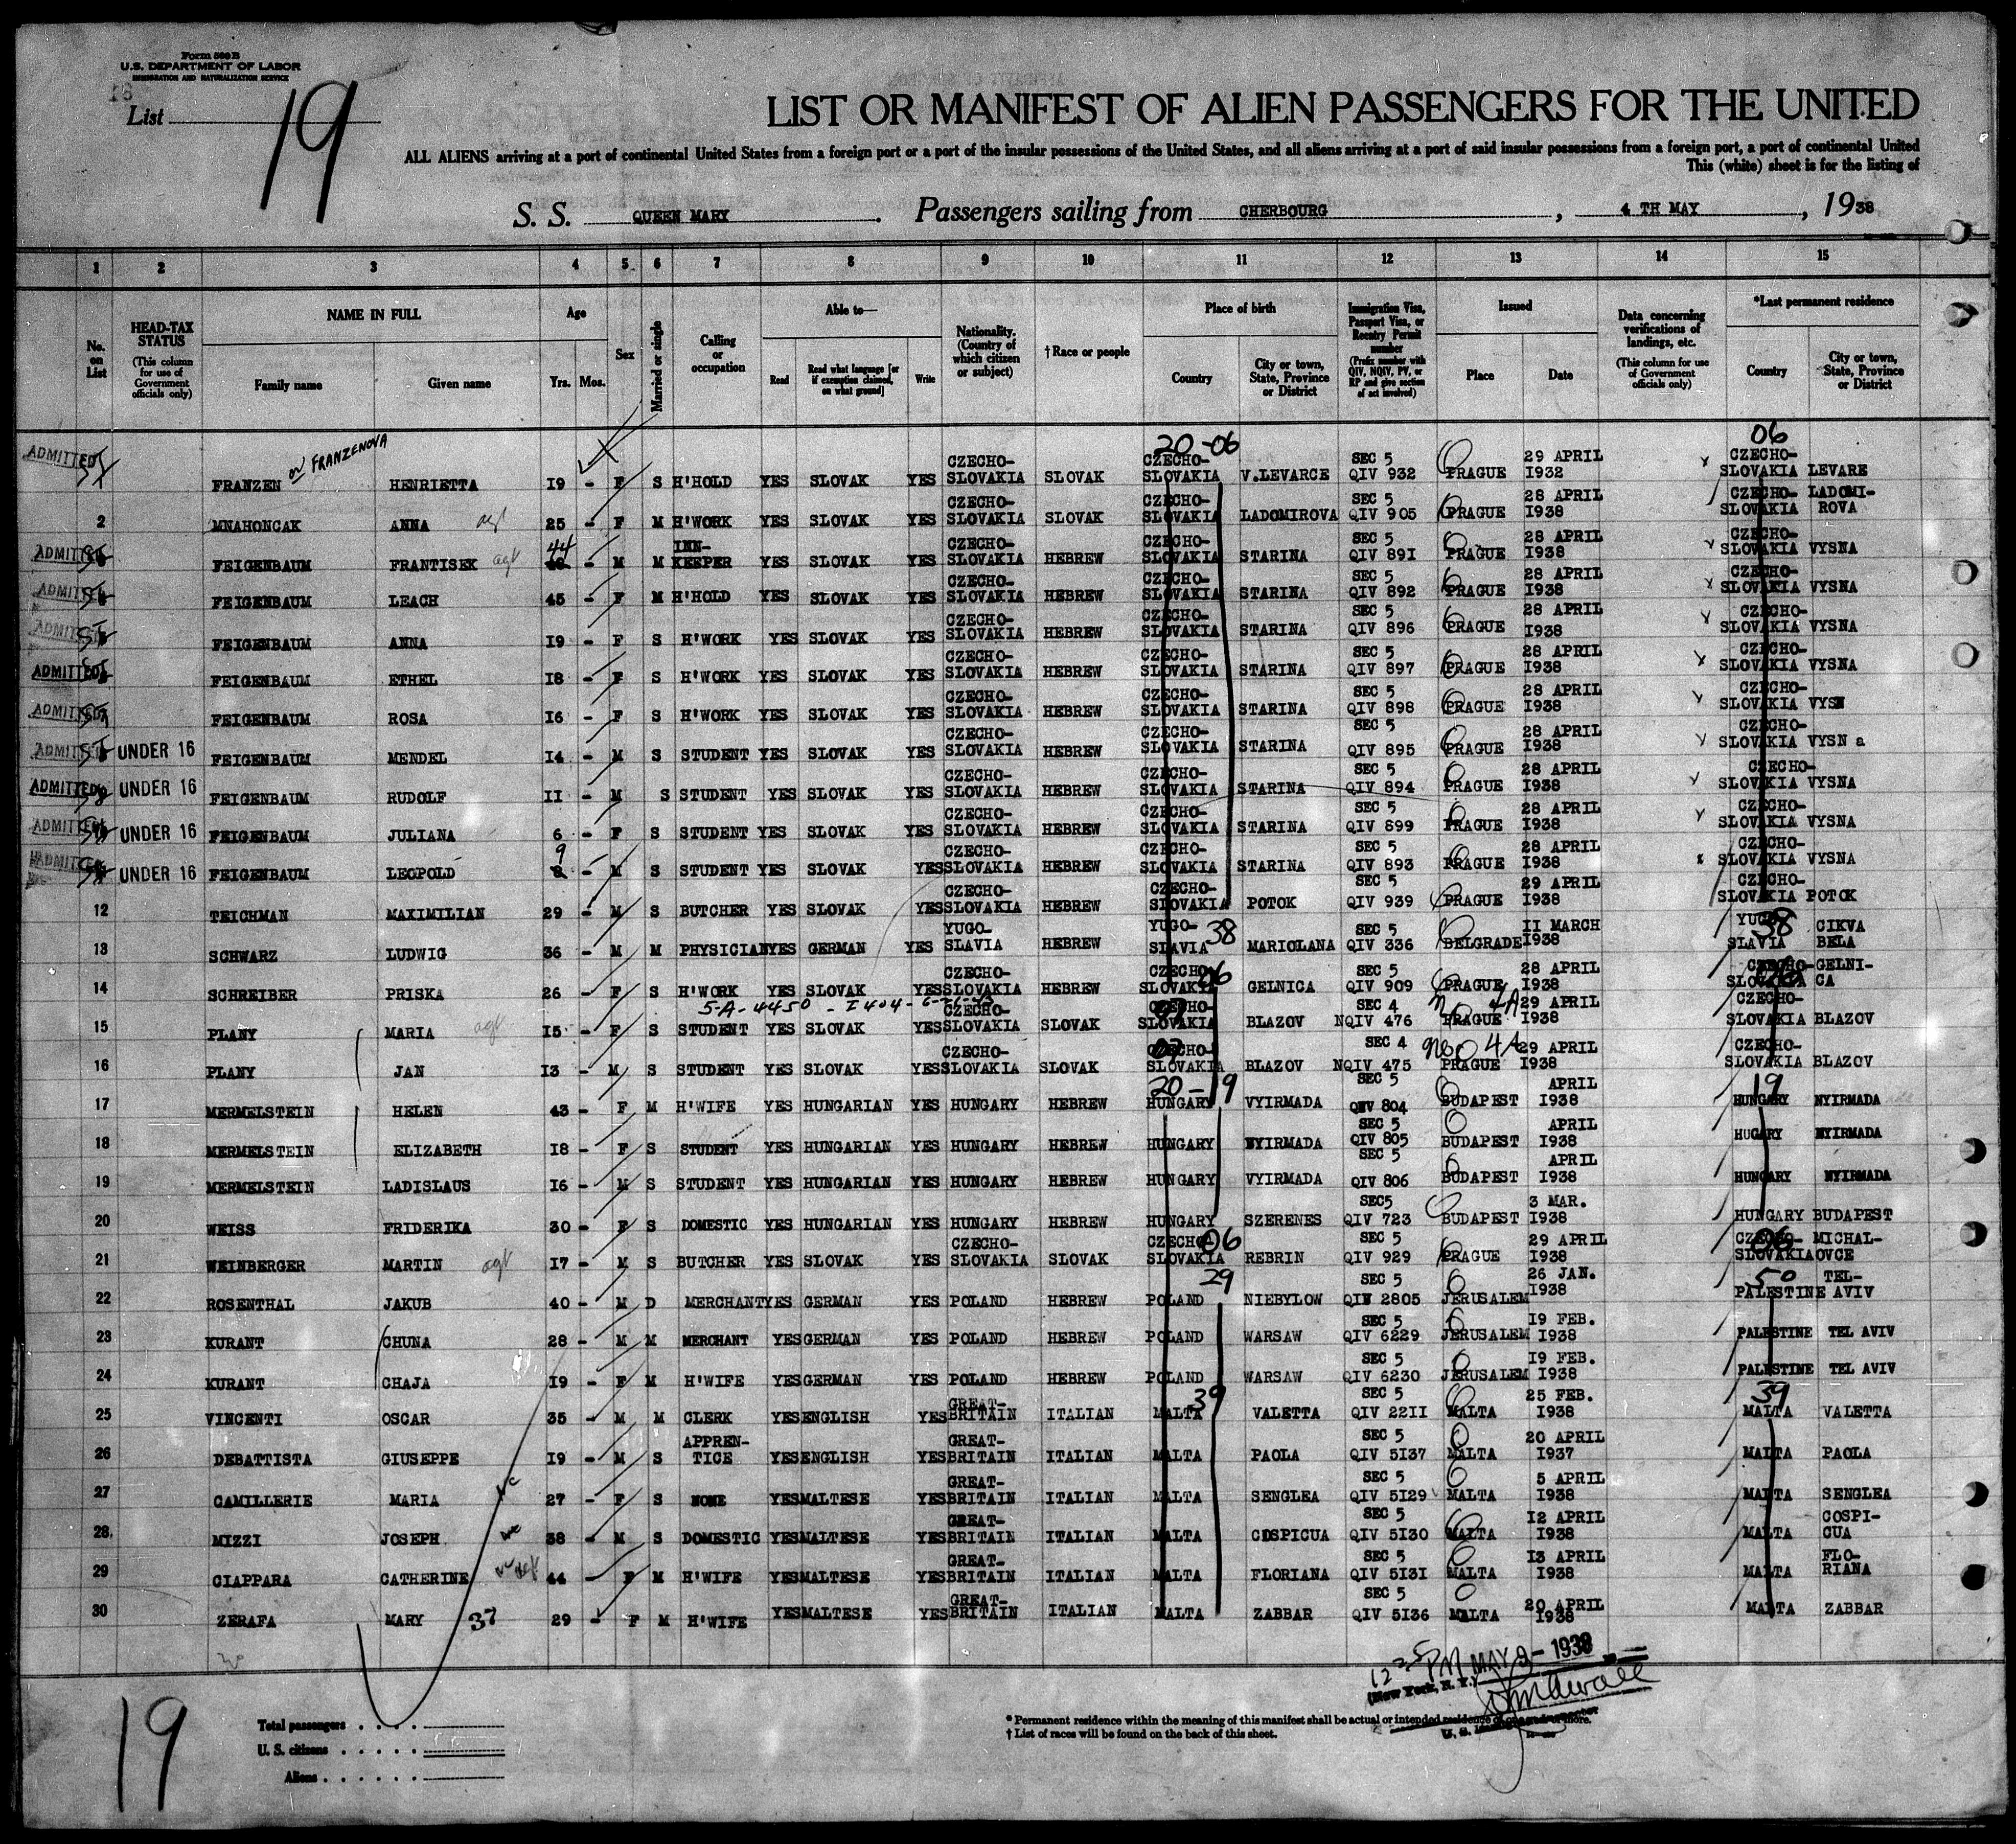 Form 500 B
U.S. DEPARTMENT OF LABOR
IMMIGRATION AND NATURALIZATION SERVICE
List 19
LIST OR MANIFEST OF ALIEN PASSENGERS FOR THE UNITED
ALL ALIENS arriving at a port of continental United States from a foreign port or a port of the insular possessions of the United States, and all aliens arriving at a port of said insular possessions from a foreign port, a port of continental United
This (white) sheet is for the listing of
S. S. QUEEN MARY. Passengers sailing from CHERBOURG, 4 TH MAY, 1938
1 2 3 4 5 6 7 8 9 10 11 12 13 14 15
No. on List
HEAD-TAX STATUS (This column for use of Government officials only)
NAME IN FULL Family name Given name
Age Yrs. Mos.
Sex
Married or single
Calling or occupation
Able to— Read Read what language [or if exemption claimed, on what ground] Write
Nationality. (Country of which citizen or subject)
†Race or people
Place of birth Country City or town, State, Province or District
Immigration Visa, Passport Visa, or Reentry Permit number (Prefix number with QIV, NQIV, PV, or RP and give section of act involved)
Issued Place Date
Data concerning verifications of landings, etc. (This column for use of Government officials only)
*Last permanent residence Country City or town, State, Province or District
20-06 06
ADMITTED FRANZEN or FRANZENOVA HENRIETTA 19 - F S H'HOLD YES SLOVAK YES CZECHO-SLOVAKIA SLOVAK CZECHO-SLOVAKIA V.LEVARCE SEC 5 QIV 932 PRAGUE 29 APRIL 1932 CZECHO-SLOVAKIA LEVARE
2 MNAHONCAK ANNA agt 25 - F M H'WORK YES SLOVAK YES CZECHO-SLOVAKIA SLOVAK CZECHO-SLOVAKIA LADOMIROVA SEC 5 QIV 905 PRAGUE 28 APRIL 1938 CZECHO-SLOVAKIA LADOMI-ROVA
ADMITTED FEIGENBAUM FRANTISEK agt 44 - M M INN-KEEPER YES SLOVAK YES CZECHO-SLOVAKIA HEBREW CZECHO-SLOVAKIA STARINA SEC 5 QIV 891 PRAGUE 28 APRIL 1938 CZECHO-SLOVAKIA VYSNA
ADMITTED FEIGENBAUM LEACH 45 - F M H'HOLD YES SLOVAK YES CZECHO-SLOVAKIA HEBREW CZECHO-SLOVAKIA STARINA SEC 5 QIV 892 PRAGUE 28 APRIL 1938 CZECHO-SLOVAKIA VYSNA
ADMITTED FEIGENBAUM ANNA 19 - F S H'WORK YES SLOVAK YES CZECHO-SLOVAKIA HEBREW CZECHO-SLOVAKIA STARINA SEC 5 QIV 896 PRAGUE 28 APRIL 1938 CZECHO-SLOVAKIA VYSNA
ADMITTED FEIGENBAUM ETHEL 18 - F S H'WORK YES SLOVAK YES CZECHO-SLOVAKIA HEBREW CZECHO-SLOVAKIA STARINA SEC 5 QIV 897 PRAGUE 28 APRIL 1938 CZECHO-SLOVAKIA VYSNA
ADMITTED FEIGENBAUM ROSA 16 - F S H'WORK YES SLOVAK YES CZECHO-SLOVAKIA HEBREW CZECHO-SLOVAKIA STARINA SEC 5 QIV 898 PRAGUE 28 APRIL 1938 CZECHO-SLOVAKIA VYSN
ADMITTED UNDER 16 FEIGENBAUM MENDEL 14 - M S STUDENT YES SLOVAK YES CZECHO-SLOVAKIA HEBREW CZECHO-SLOVAKIA STARINA SEC 5 QIV 895 PRAGUE 28 APRIL 1938 CZECHO-SLOVAKIA VYSN a
ADMITTED UNDER 16 FEIGENBAUM RUDOLF 11 - M S STUDENT YES SLOVAK YES CZECHO-SLOVAKIA HEBREW CZECHO-SLOVAKIA STARINA SEC 5 QIV 894 PRAGUE 28 APRIL 1938 CZECHO-SLOVAKIA VYSNA
ADMITTED UNDER 16 FEIGENBAUM JULIANA 6 - F S STUDENT YES SLOVAK YES CZECHO-SLOVAKIA HEBREW CZECHO-SLOVAKIA STARINA SEC 5 QIV 899 PRAGUE 28 APRIL 1938 CZECHO-SLOVAKIA VYSNA
ADMITTED UNDER 16 FEIGENBAUM LEOPOLD 9 - M S STUDENT YES SLOVAK YES CZECHO-SLOVAKIA HEBREW CZECHO-SLOVAKIA STARINA SEC 5 QIV 893 PRAGUE 28 APRIL 1938 CZECHO-SLOVAKIA VYSNA
12 TEICHMAN MAXIMILIAN 29 - M S BUTCHER YES SLOVAK YES CZECHO-SLOVAKIA HEBREW CZECHO-SLOVAKIA POTOK SEC 5 QIV 939 PRAGUE 29 APRIL 1938 CZECHO-SLOVAKIA POTOK
13 SCHWARZ LUDWIG 36 - M M PHYSICIAN YES GERMAN YES YUGO-SLAVIA HEBREW YUGO-SLAVIA 38 MARIOLANA SEC 5 QIV 336 BELGRADE 11 MARCH 1938 YUGO-SLAVIA 38 CIKVA BELA
14 SCHREIBER PRISKA 26 - F S H'WORK YES SLOVAK YES CZECHO-SLOVAKIA HEBREW CZECHO-SLOVAKIA 06 GELNICA SEC 5 QIV 909 PRAGUE 28 APRIL 1938 CZECHO-SLOVAKIA GELNI-CA
5-A-4450 - I404-
15 PLANY MARIA agt 15 - F S STUDENT YES SLOVAK YES CZECHO-SLOVAKIA SLOVAK CZECHO-SLOVAKIA BLAZOV SEC 4 NQIV 476 PRAGUE 4A 29 APRIL 1938 CZECHO-SLOVAKIA BLAZOV
16 PLANY JAN 13 - M S STUDENT YES SLOVAK YES CZECHO-SLOVAKIA SLOVAK CZECHO-SLOVAKIA BLAZOV SEC 4 NQIV 475 PRAGUE 4A 29 APRIL 1938 CZECHO-SLOVAKIA BLAZOV
20-19 19
17 MERMELSTEIN HELEN 43 - F M H'WIFE YES HUNGARIAN YES HUNGARY HEBREW HUNGARY VYIRMADA SEC 5 QIV 804 BUDAPEST APRIL 1938 HUNGARY NYIRMADA
18 MERMELSTEIN ELIZABETH 18 - F S STUDENT YES HUNGARIAN YES HUNGARY HEBREW HUNGARY NYIRMADA SEC 5 QIV 805 BUDAPEST APRIL 1938 HUGARY NYIRMADA
19 MERMELSTEIN LADISLAUS 16 - M S STUDENT YES HUNGARIAN YES HUNGARY HEBREW HUNGARY VYIRMADA SEC 5 QIV 806 BUDAPEST APRIL 1938 HUNGARY NYIRMADA
20 WEISS FRIDERIKA 30 - F S DOMESTIC YES HUNGARIAN YES HUNGARY HEBREW HUNGARY SZERENES SEC5 QIV 723 BUDAPEST 3 MAR. 1938 HUNGARY BUDAPEST
21 WEINBERGER MARTIN agt 17 - M S BUTCHER YES SLOVAK YES CZECHO-SLOVAKIA SLOVAK CZECHO-SLOVAKIA 06 REBRIN SEC 5 QIV 929 PRAGUE 29 APRIL 1938 CZECHO-SLOVAKIA 06 MICHAL-OVCE
22 ROSENTHAL JAKUB 40 - M D MERCHANT YES GERMAN YES POLAND HEBREW POLAND 29 NIEBYLOW SEC 5 QIV 2805 JERUSALEM 26 JAN. 1938 50 PALESTINE TEL-AVIV
23 KURANT CHUNA 28 - M M MERCHANT YES GERMAN YES POLAND HEBREW POLAND WARSAW SEC 5 QIV 6229 JERUSALEM 19 FEB. 1938 PALESTINE TEL AVIV
24 KURANT CHAJA 19 - F M H'WIFE YES GERMAN YES POLAND HEBREW POLAND WARSAW SEC 5 QIV 6230 JERUSALEM 19 FEB. 1938 PALESTINE TEL AVIV
25 VINCENTI OSCAR 35 - M M CLERK YES ENGLISH YES GREAT-BRITAIN ITALIAN MALTA 39 VALETTA SEC 5 QIV 2211 MALTA 25 FEB. 1938 MALTA 39 VALETTA
26 DEBATTISTA GIUSEPPE 19 - M S APPREN-TICE YES ENGLISH YES GREAT-BRITAIN ITALIAN MALTA PAOLA SEC 5 QIV 5137 MALTA 20 APRIL 1937 MALTA PAOLA
27 CAMILLERIE MARIA 27 - F S NONE YES MALTESE YES GREAT-BRITAIN ITALIAN MALTA SENGLEA SEC 5 QIV 5129 MALTA 5 APRIL 1938 MALTA SENGLEA
28. MIZZI JOSEPH 38 - M S DOMESTIC YES MALTESE YES GREAT-BRITAIN ITALIAN MALTA COSPICUA SEC 5 QIV 5130 MALTA 12 APRIL 1938 MALTA COSPI-CUA
29 CIAPPARA CATHERINE 44 - F M H'WIFE YES MALTESE YES GREAT-BRITAIN ITALIAN MALTA FLORIANA SEC 5 QIV 5131 MALTA 13 APRIL 1938 MALTA FLO-RIANA
30 ZERAFA MARY 37 29 - F M H'WIFE YES MALTESE YES GREAT-BRITAIN ITALIAN MALTA ZABBAR SEC 5 QIV 5136 MALTA 20 APRIL 1938 MALTA ZABBAR
12 25 PM MAY 9 - 1938
(New York, N. Y.)
19
Total passengers
U. S. citizens
Aliens
* Permanent residence within the meaning of this manifest shall be actual or intended residence of one year or more.
† List of races will be found on the back of this sheet.